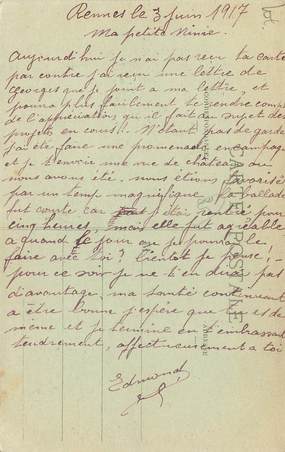 Rennes le 3 juin 1917
Ma petite Ninie.
Aujourd'hui je n'ai pas reçu ta carte
par contre j'ai reçu une lettre de
Georges que je joint a ma lettre, et
pourra plus facilement te rendre compte
de l'appréciation qu'il fait au sujet des
projets en cours!! N'étant pas de garde
j'ai été faire une promenade en campagne
et je t'envoie une vue de château ou
nous avons été. nous étions favorisés
par un temp magnifique. la ballade
fut courte car j'étai rentré pour
cinq heures mais elle fut agréable
a quand le jour ou je pourrai le
faire avec toi? bientot je pense!
pour ce soir je ne t'en dirai pas
d'avantage, ma santé continuant
a être bonne j'espère que tu es de
même et je termine en t'embrassant
tendrement, affectueusement a toi
Edmond
CARTE POSTALE